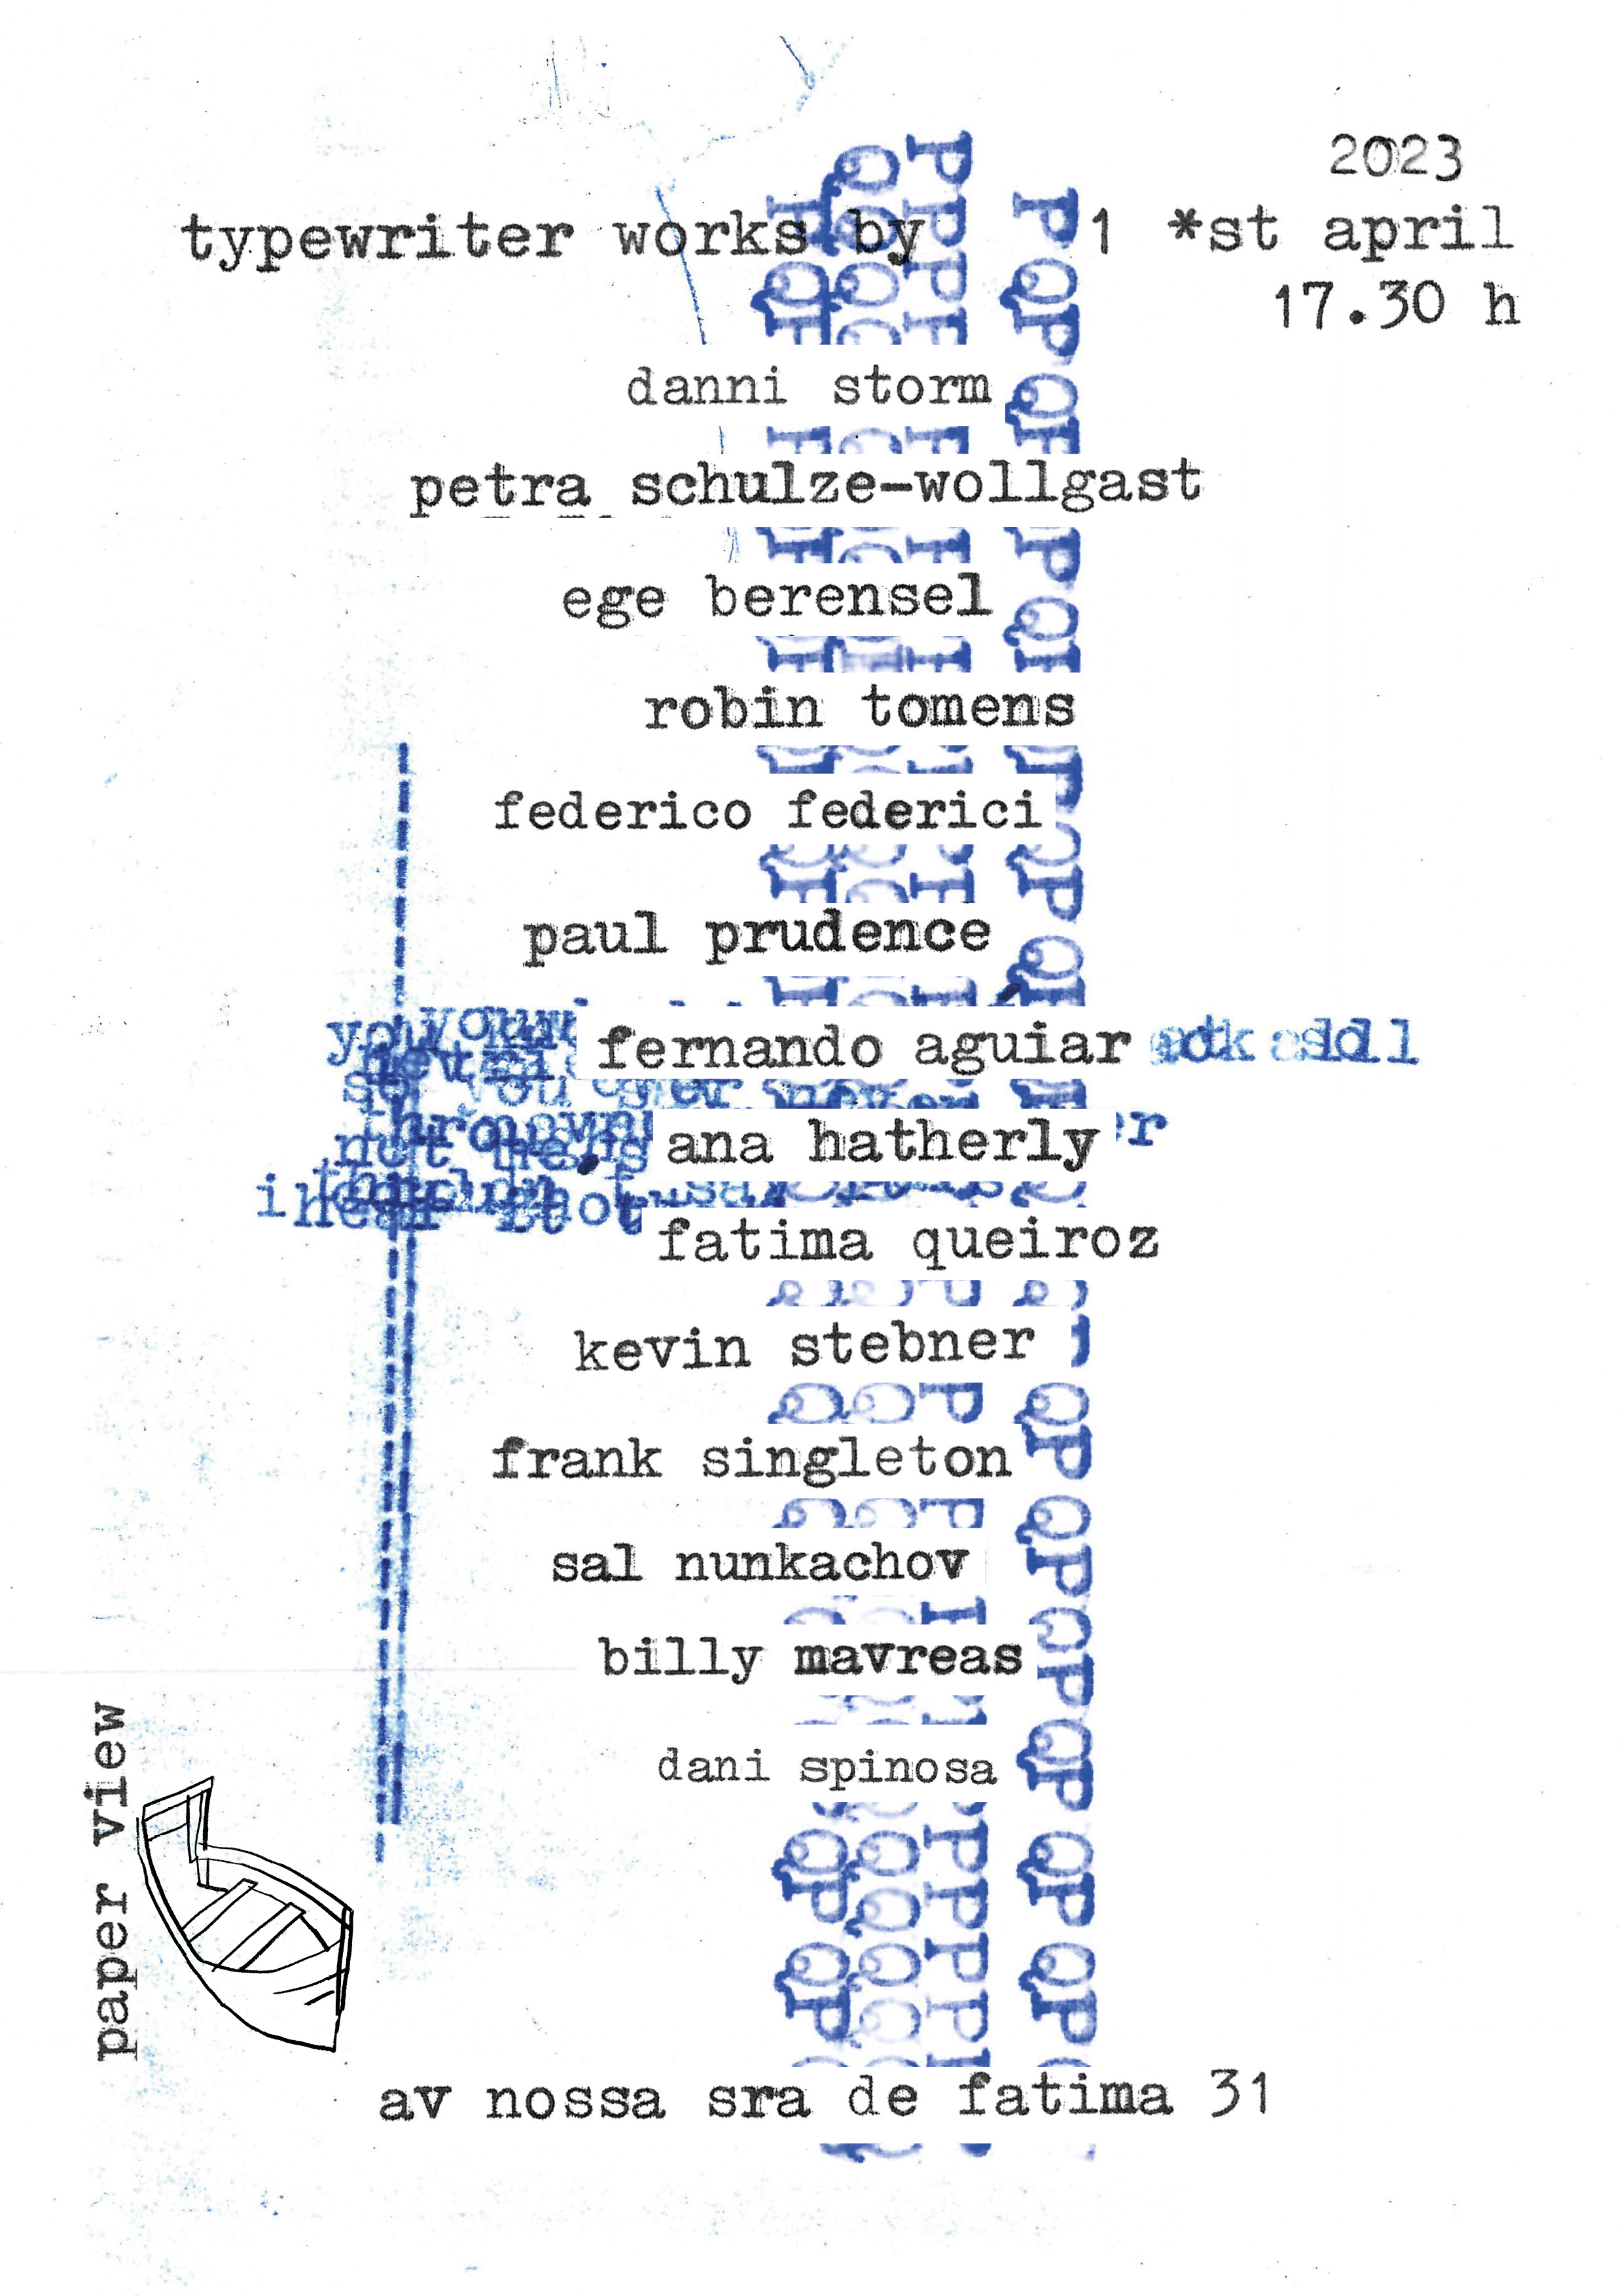 2023
typewriter works by
1 *st april
17.30 h
danni storm
petra schulze-wollgast
ege berensel
robin tomens
federico federici
paul prudence
fernando aguiar
ana hatherly
fatima queiroz
kevin stebner
frank singleton
sal nunkachov
billy mavreas
dani spinosa
paper view
av nossa sra de fatima 31